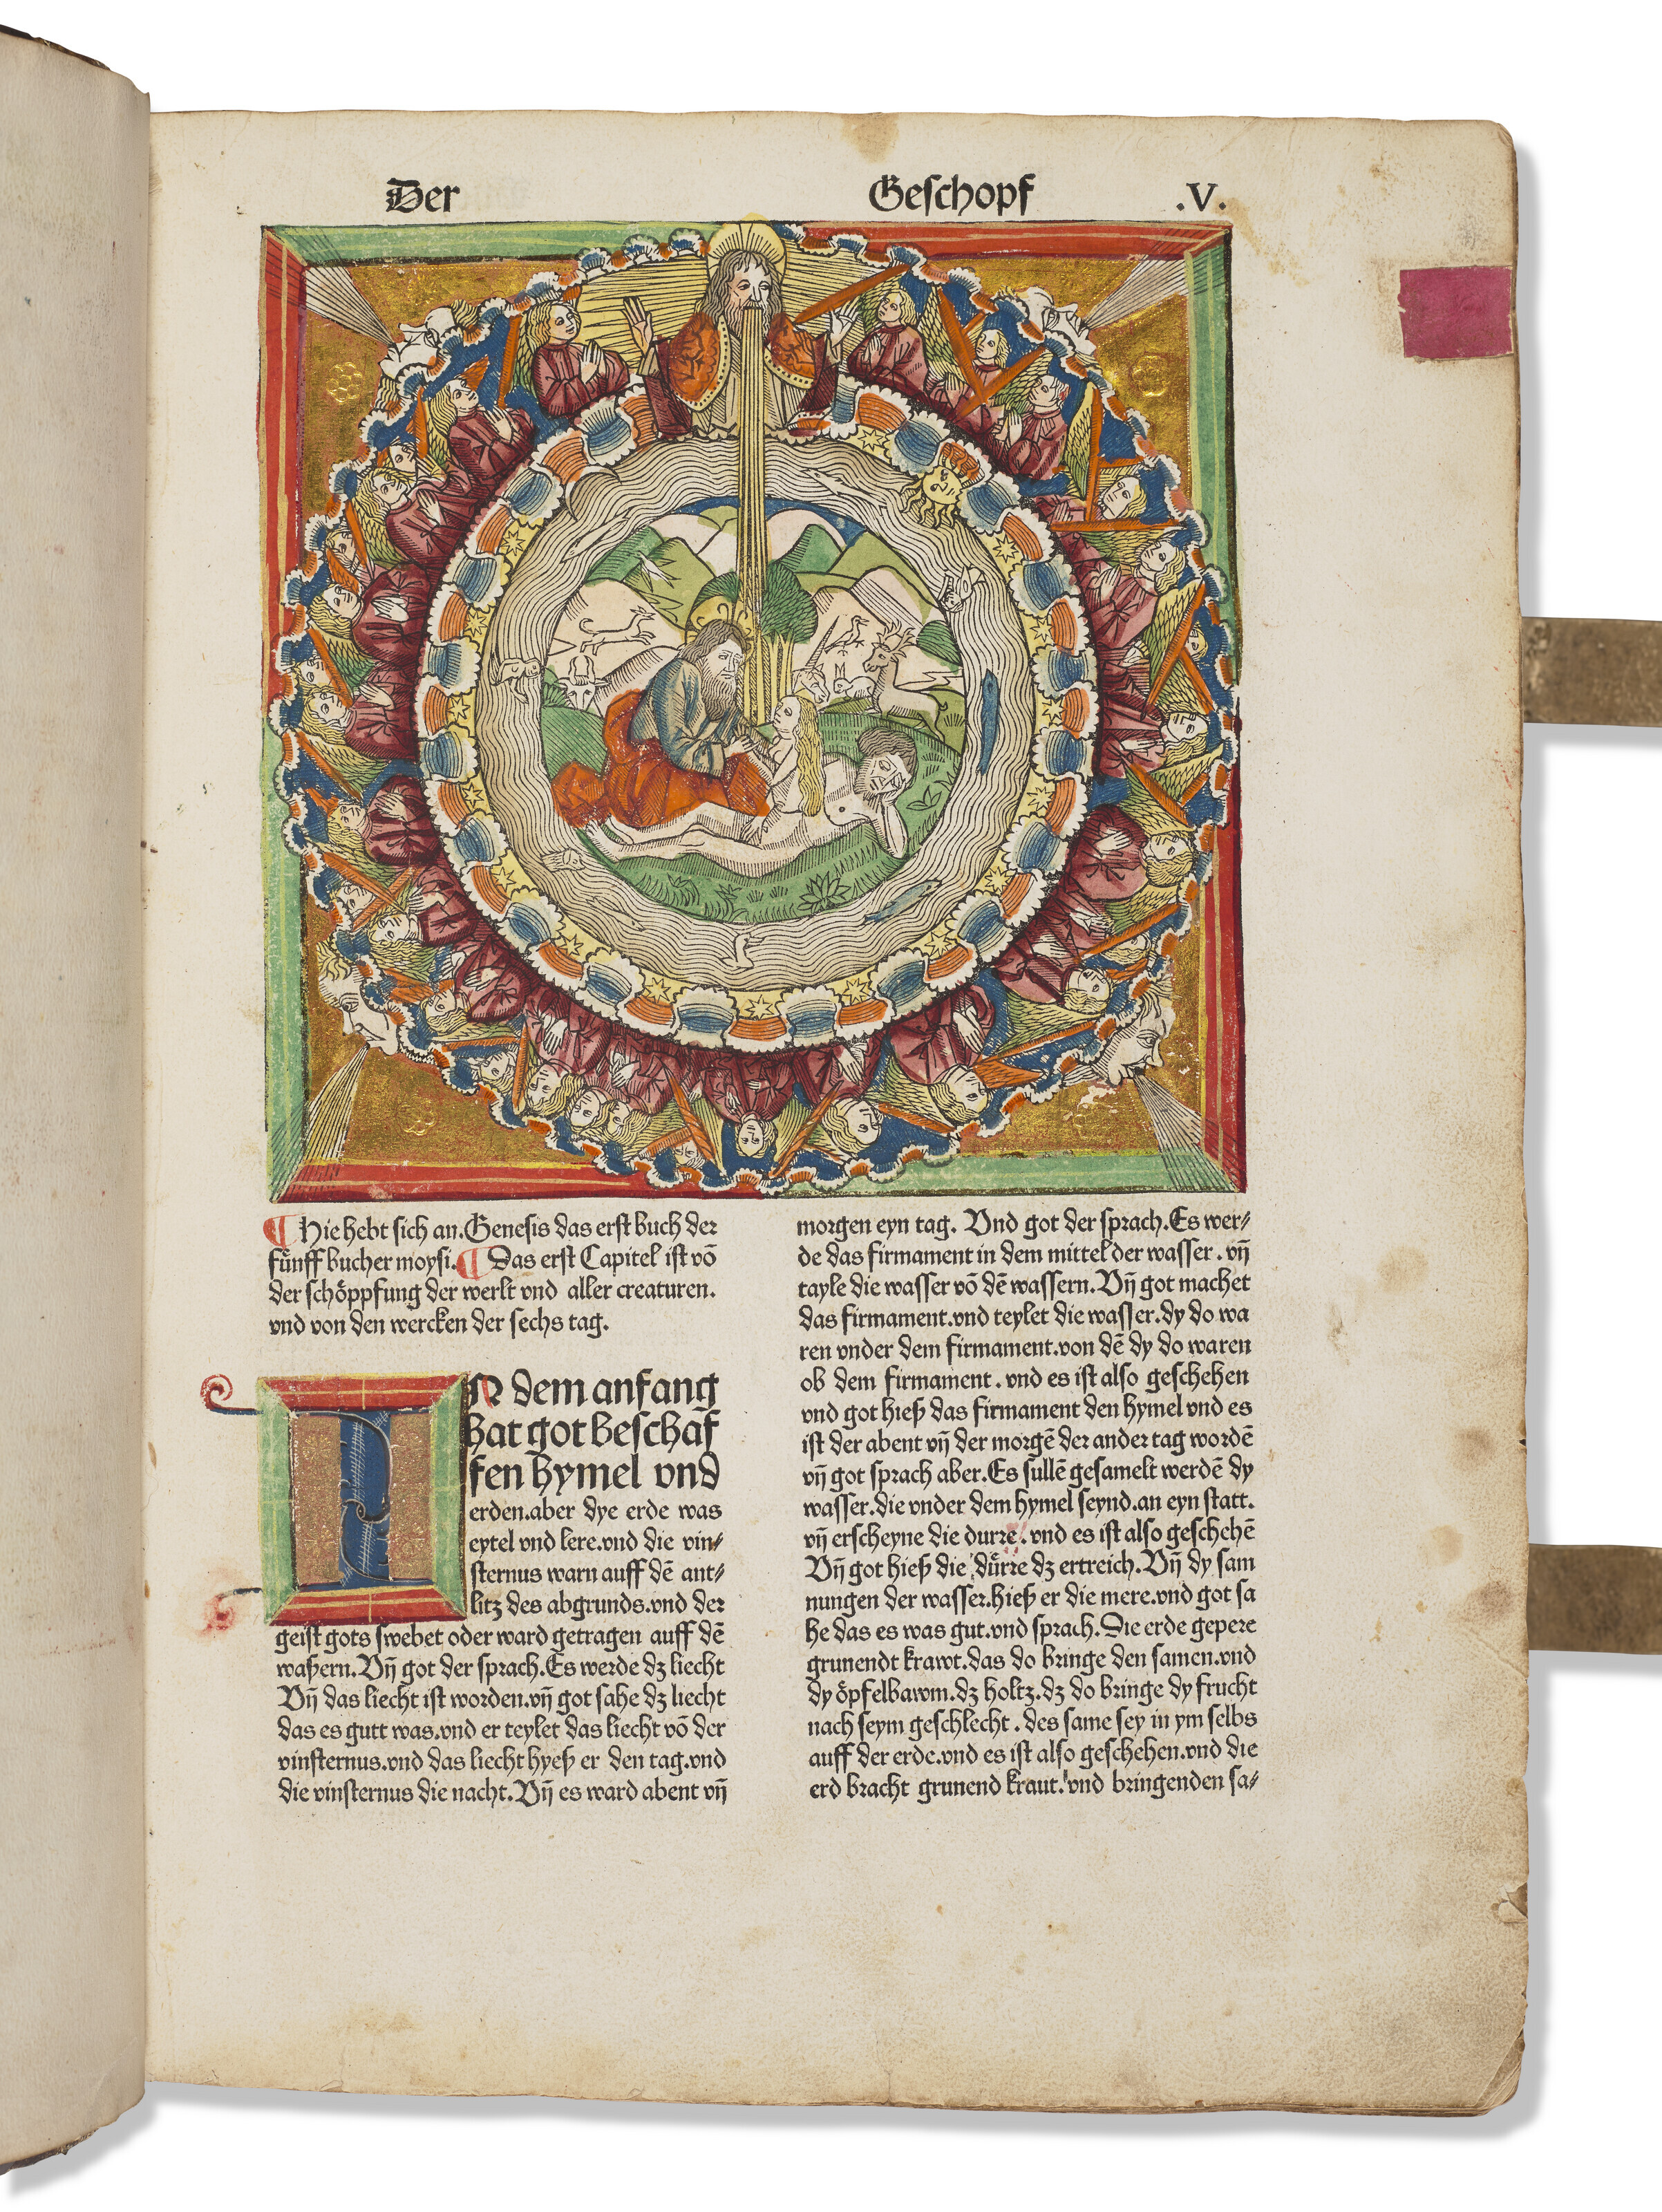 Der Geschopf .V.
Hie hebt sich an. Genesis das erst buch der
fünff bucher moysi. Das erst Capitel ist vō
der schöppfung der werlt vnd aller creaturen.
vnd von den wercken der sechs tag.
IN dem anfang
hat got beschaf
fen hymel vnd
erden.aber dye erde was
eytel vnd lere.vnd die vin⸗
sternus warn auff dē ant⸗
litz des abgrunds.vnd der
geist gots swebet oder ward getragen auff dē
waßern.Vñ got der sprach.Es werde dz liecht
Vñ das liecht ist worden.vñ got sahe dz liecht
das es gutt was.vnd er teylet das liecht vō der
vinsternus.vnd das liecht hyeß er den tag.vnd
die vinsternus die nacht.Vñ es ward abent vñ
morgen eyn tag. Vnd got der sprach.Es wer⸗
de das firmament in dem mittel der wasser.vñ
tayle die wasser vō dē wassern.Vñ got machet
das firmament.vnd teylet die wasser.dy do wa
ren vnder dem firmament.von dē dy do waren
ob dem firmament.vnd es ist also geschehen
vnd got hieß das firmament den hymel vnd es
ist der abent vñ der morgē der ander tag wordē
vñ got sprach aber.Es sullē gesamelt werdē dy
wasser.die vnder dem hymel seynd.an eyn statt.
vñ erscheyne die durre.vnd es ist also geschehē
Vñ got hieß die dürre dz ertreich.Vñ dy sam
nungen der wasser.hieß er die mere.vnd got sa
he das es was gut.vnd sprach.Die erde gepere
grunendt krawt.das do bringe den samen.vnd
dy öpfelbawm.dz holtz.dz do bringe dy frucht
nach seym geschlecht.des same sey in ym selbs
auff der erde.vnd es ist also geschehen.vnd die
erd bracht grunend kraut.vnd bringenden sa⸗